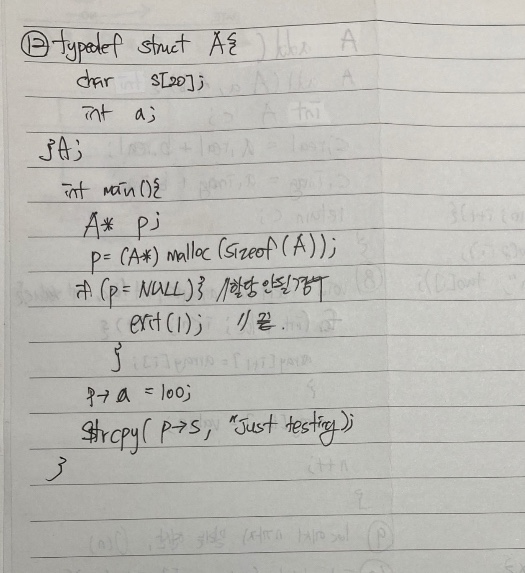 ⑫ typedef struct A{
char s[20];
int a;
}A;
int main(){
A* p;
p= (A*) malloc (sizeof(A));
if (p= NULL){ //할당 안될 경우
exit(1); // 끝.
}
p→a =100;
strcpy( p→s, "Just testing);
}